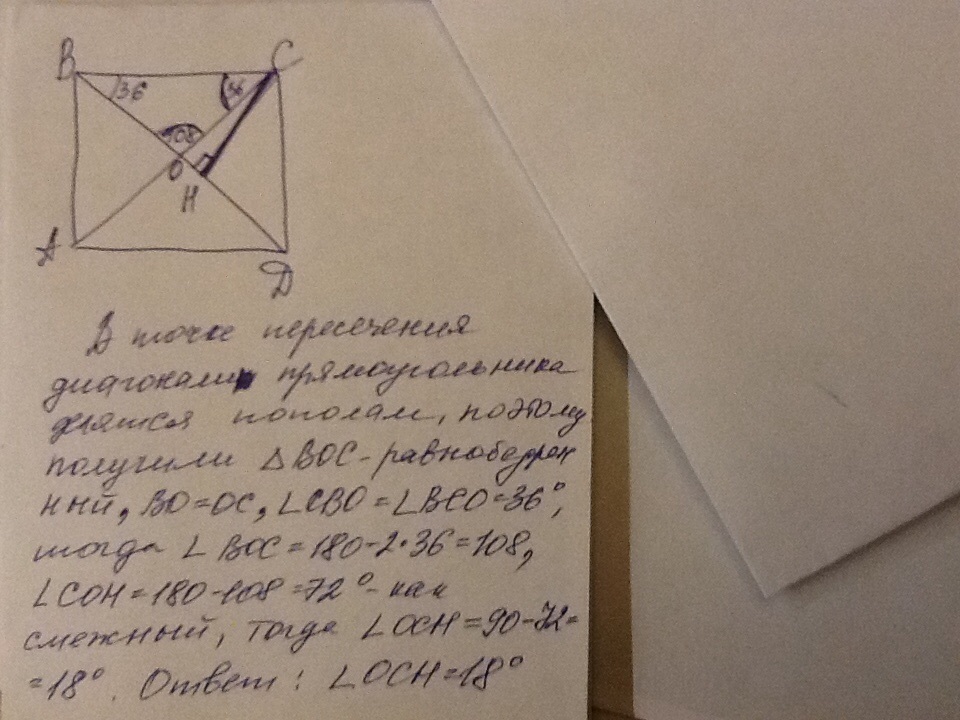 B C
36 36
108
O
H
A D
В точке пересечения
диагонали прямоугольника
делятся пополам, поэтому
получили △BOC - равнобедрен
ный, BO=OC, ∠CBO=∠BCO=36°,
тогда ∠BOC=180-2·36=108,
∠COH=180-108=72° - как
смежный, тогда ∠OCH=90-72=
=18°. Ответ: ∠OCH=18°